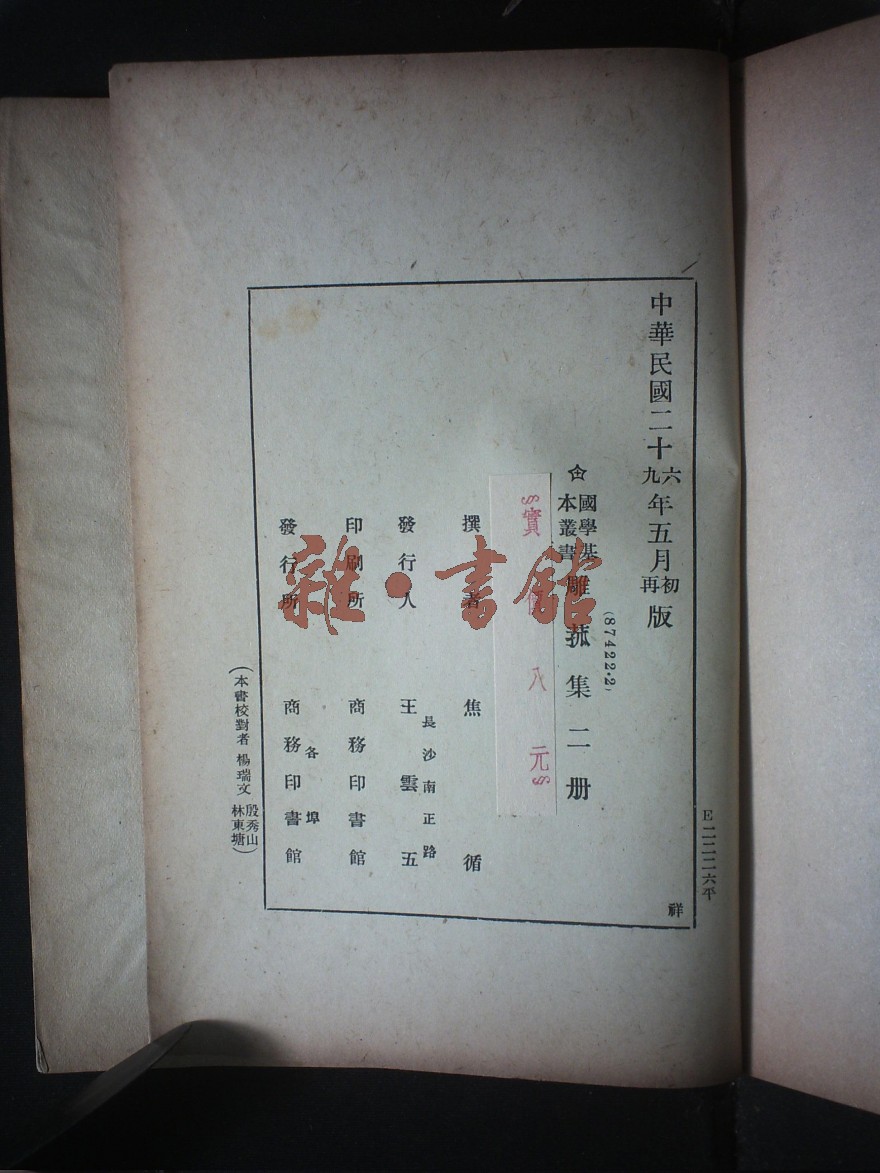 中華民國二十六九年五月初再版
(87422·2)
國學基本叢書 雕菰集二册
實價八元
撰者 焦循
發行人 王雲五
長沙南正路
印刷所 商務印書館
各埠
發行所 商務印書館
(本書校對者 楊瑞文 殷秀山 林東塘)
E二二二六平
祥
雜·書館